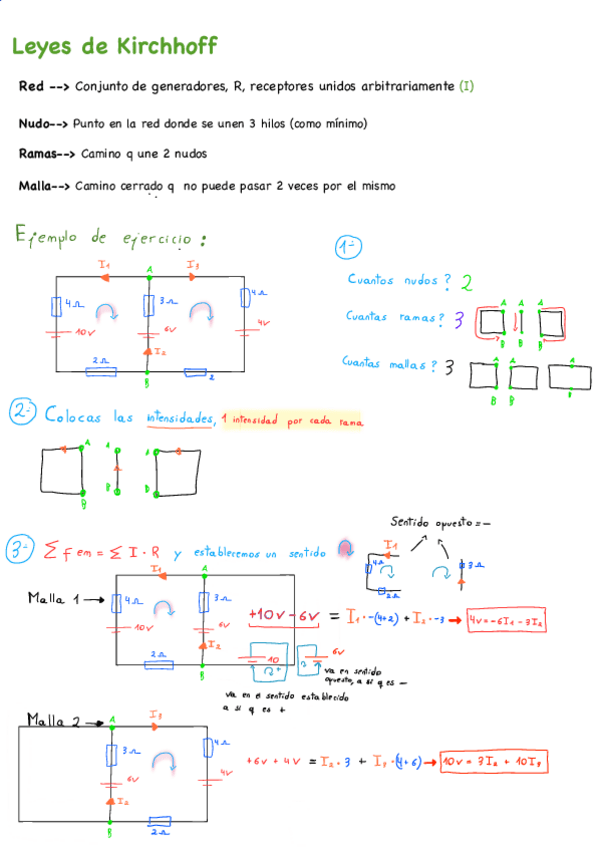 Leyes de Kirchhoff
Red --> Conjunto de generadores, R, receptores unidos arbitrariamente (I)
Nudo--> Punto en la red donde se unen 3 hilos (como mínimo)
Ramas--> Camino q une 2 nudos
Malla--> Camino cerrado q no puede pasar 2 veces por el mismo
Ejemplo de ejercicio :
I1 A I3
4Ω 3Ω 4Ω
10V 6V 4V
I2
2Ω B 2
1-
Cuantos nudos? 2
Cuantas ramas? 3
A A A
B B B
Cuantas mallas? 3
A A A
B B B
2- Colocas las intensidades, 1 intensidad por cada rama
A A A
B B D
3- Σ fem = Σ I · R y estableceremos un sentido
Sentido opuesto = -
I1
4Ω 3Ω
2Ω
Malla 1
I1 A
4Ω 3Ω
10V 6V
I2
2Ω B
+10V - 6V = I1 · -(4+2) + I2 · -3 → 4V = -6I1 - 3I2
10 6V
va en sentido opuesto, a si q es -
va en el sentido establecido
a si q es +
Malla 2
A I3
3Ω 4Ω
6V 4V
I2
B 2Ω
+6V + 4V = I2 · 3 + I3 · (4+6) → 10V = 3I2 + 10I3